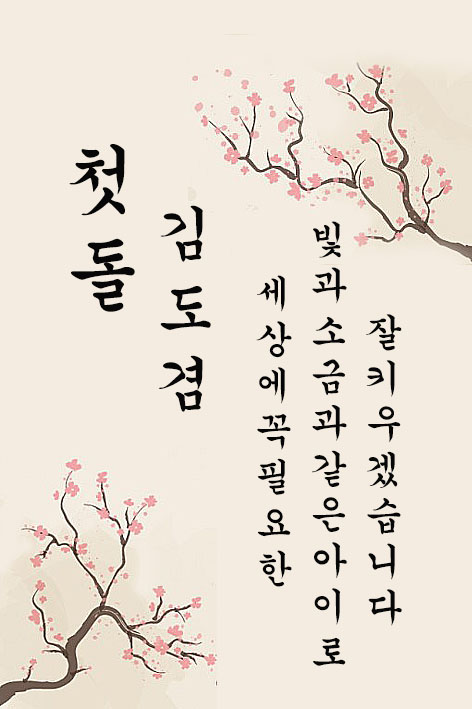 첫돌
김도겸
세상에꼭필요한
빛과소금과같은아이로
잘키우겠습니다